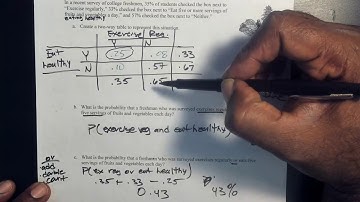 In a recent survey of college freemen, 35% of students checked the box next to
"Exercise regularly," 33% checked the box next to "Eat five or more servings of
fruits and vegetables every day," and 57% checked the box next to "Neither."
eating healthy
a. Create a two-way table to represent this situation.
Exercise Reg
Y N
Eat Y .25 .08 .33
healthy N .10 .57 .67
.35 .65
b. What is the probability that a freshman who was surveyed exercises regularly and eats
five servings of fruits and vegetables each day?
P(exercise reg and eat healthy)
c. What is the probability that a freshman who was surveyed exercises regularly or eats five
servings of fruits and vegetables each day?
or
add
double
count
P(ex reg or eat healthy)
.35 + .33 - .25
0.43 43%